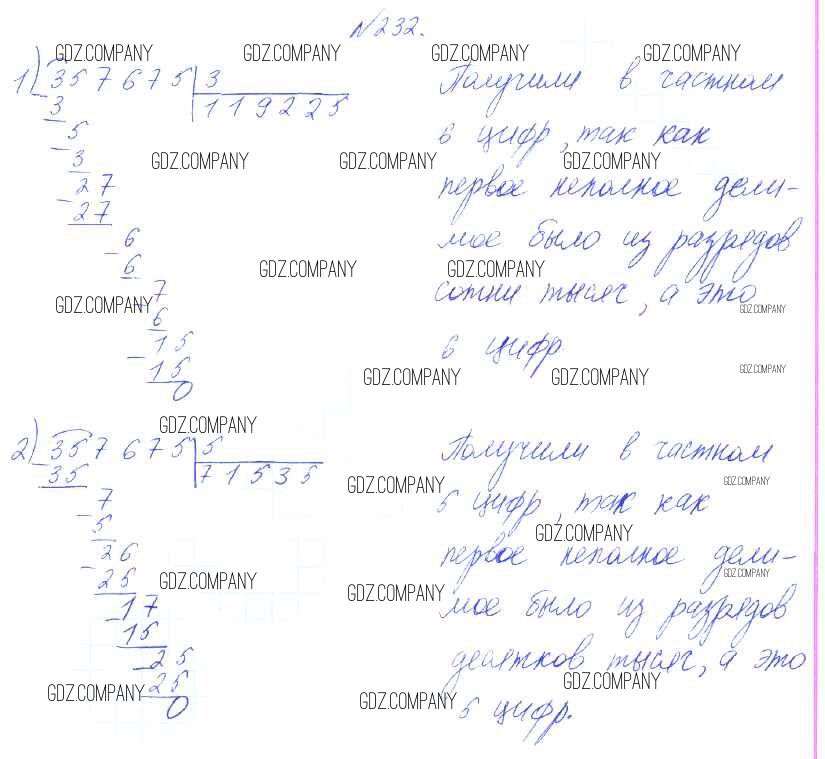 №232.
GDZ.COMPANY GDZ.COMPANY GDZ.COMPANY GDZ.COMPANY
1) 357675 | 3
119225
3
5
3
GDZ.COMPANY GDZ.COMPANY GDZ.COMPANY
27
27
6
6
GDZ.COMPANY GDZ.COMPANY
7
GDZ.COMPANY GDZ.COMPANY
6
15
15
0
GDZ.COMPANY GDZ.COMPANY GDZ.COMPANY
Получили в частном
6 цифр, так как
первое неполное дели-
мое было из разрядов
сотни тысяч, а это
6 цифр
GDZ.COMPANY
2) 357675 | 5
71535
35
7
5
26
25
17
15
25
25
0
GDZ.COMPANY GDZ.COMPANY
GDZ.COMPANY
GDZ.COMPANY GDZ.COMPANY
GDZ.COMPANY
GDZ.COMPANY GDZ.COMPANY GDZ.COMPANY
Получили в частном
5 цифр, так как
первое неполное дели-
мое было из разрядов
десятков тысяч, а это
5 цифр.